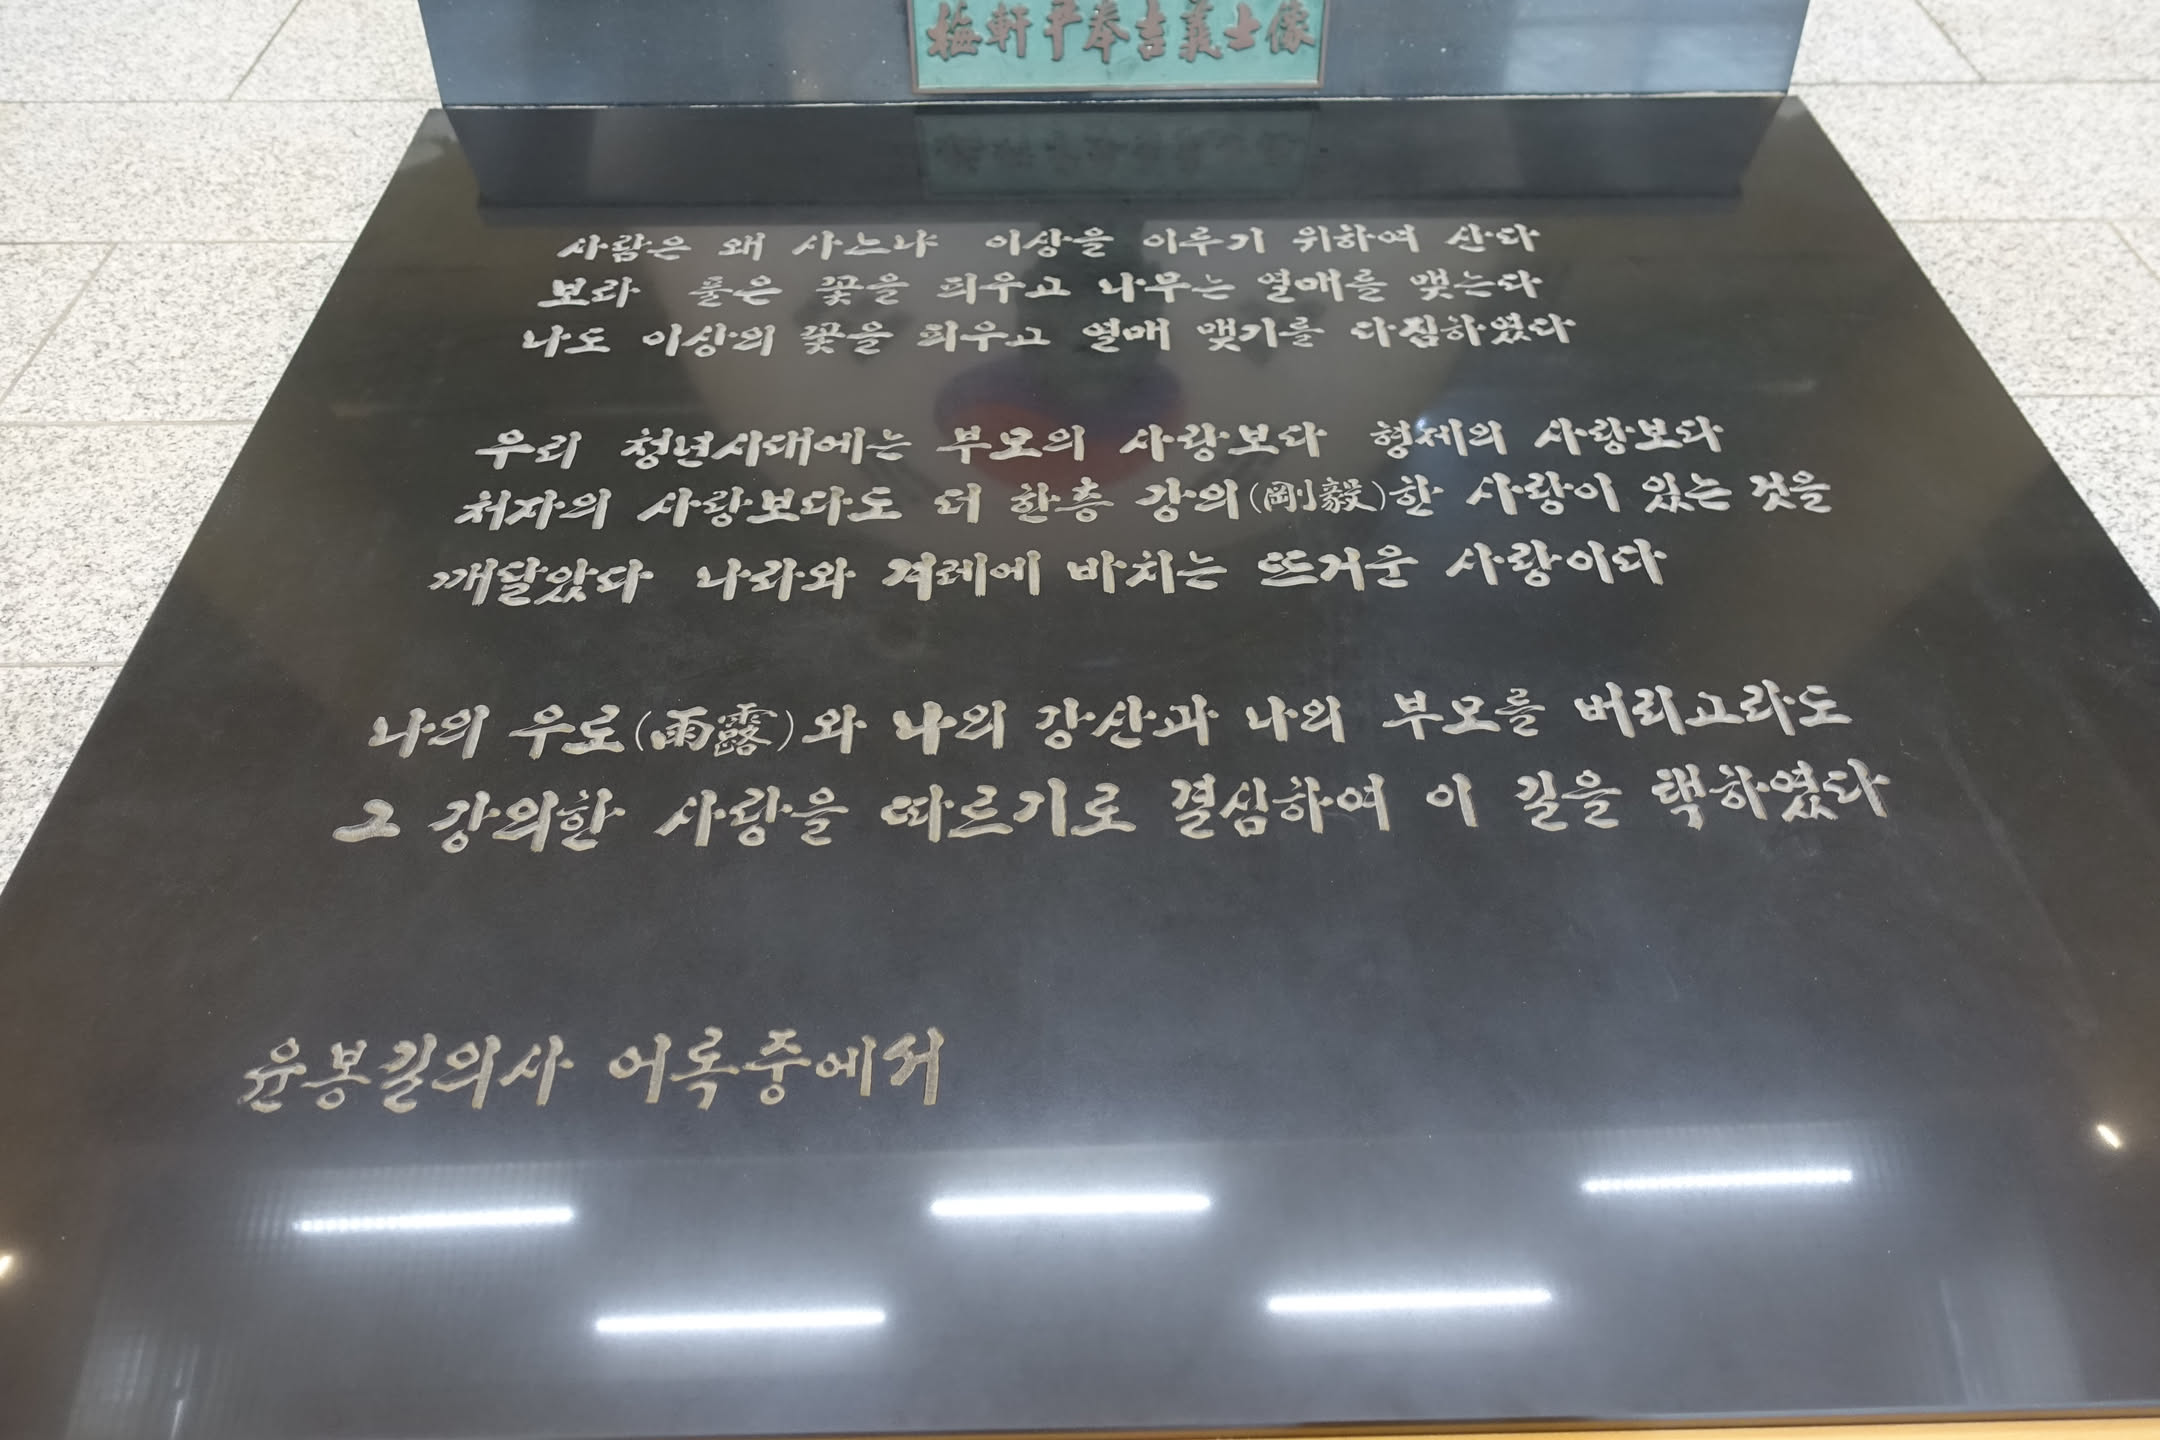 梅軒尹奉吉義士像
사람은 왜 사느냐 이상을 이루기 위하여 산다
보라 풀은 꽃을 피우고 나무는 열매를 맺는다
나도 이상의 꽃을 피우고 열매 맺기를 다짐하였다
우리 청년시대에는 부모의 사랑보다 형제의 사랑보다
처자의 사랑보다도 더 한층 강의(剛毅)한 사랑이 있는 것을
깨달았다 나라와 겨레에 바치는 뜨거운 사랑이다
나의 우로(雨露)와 나의 강산과 나의 부모를 버리고라도
그 강의한 사랑을 따르기로 결심하여 이 길을 택하였다
윤봉길의사 어록중에서